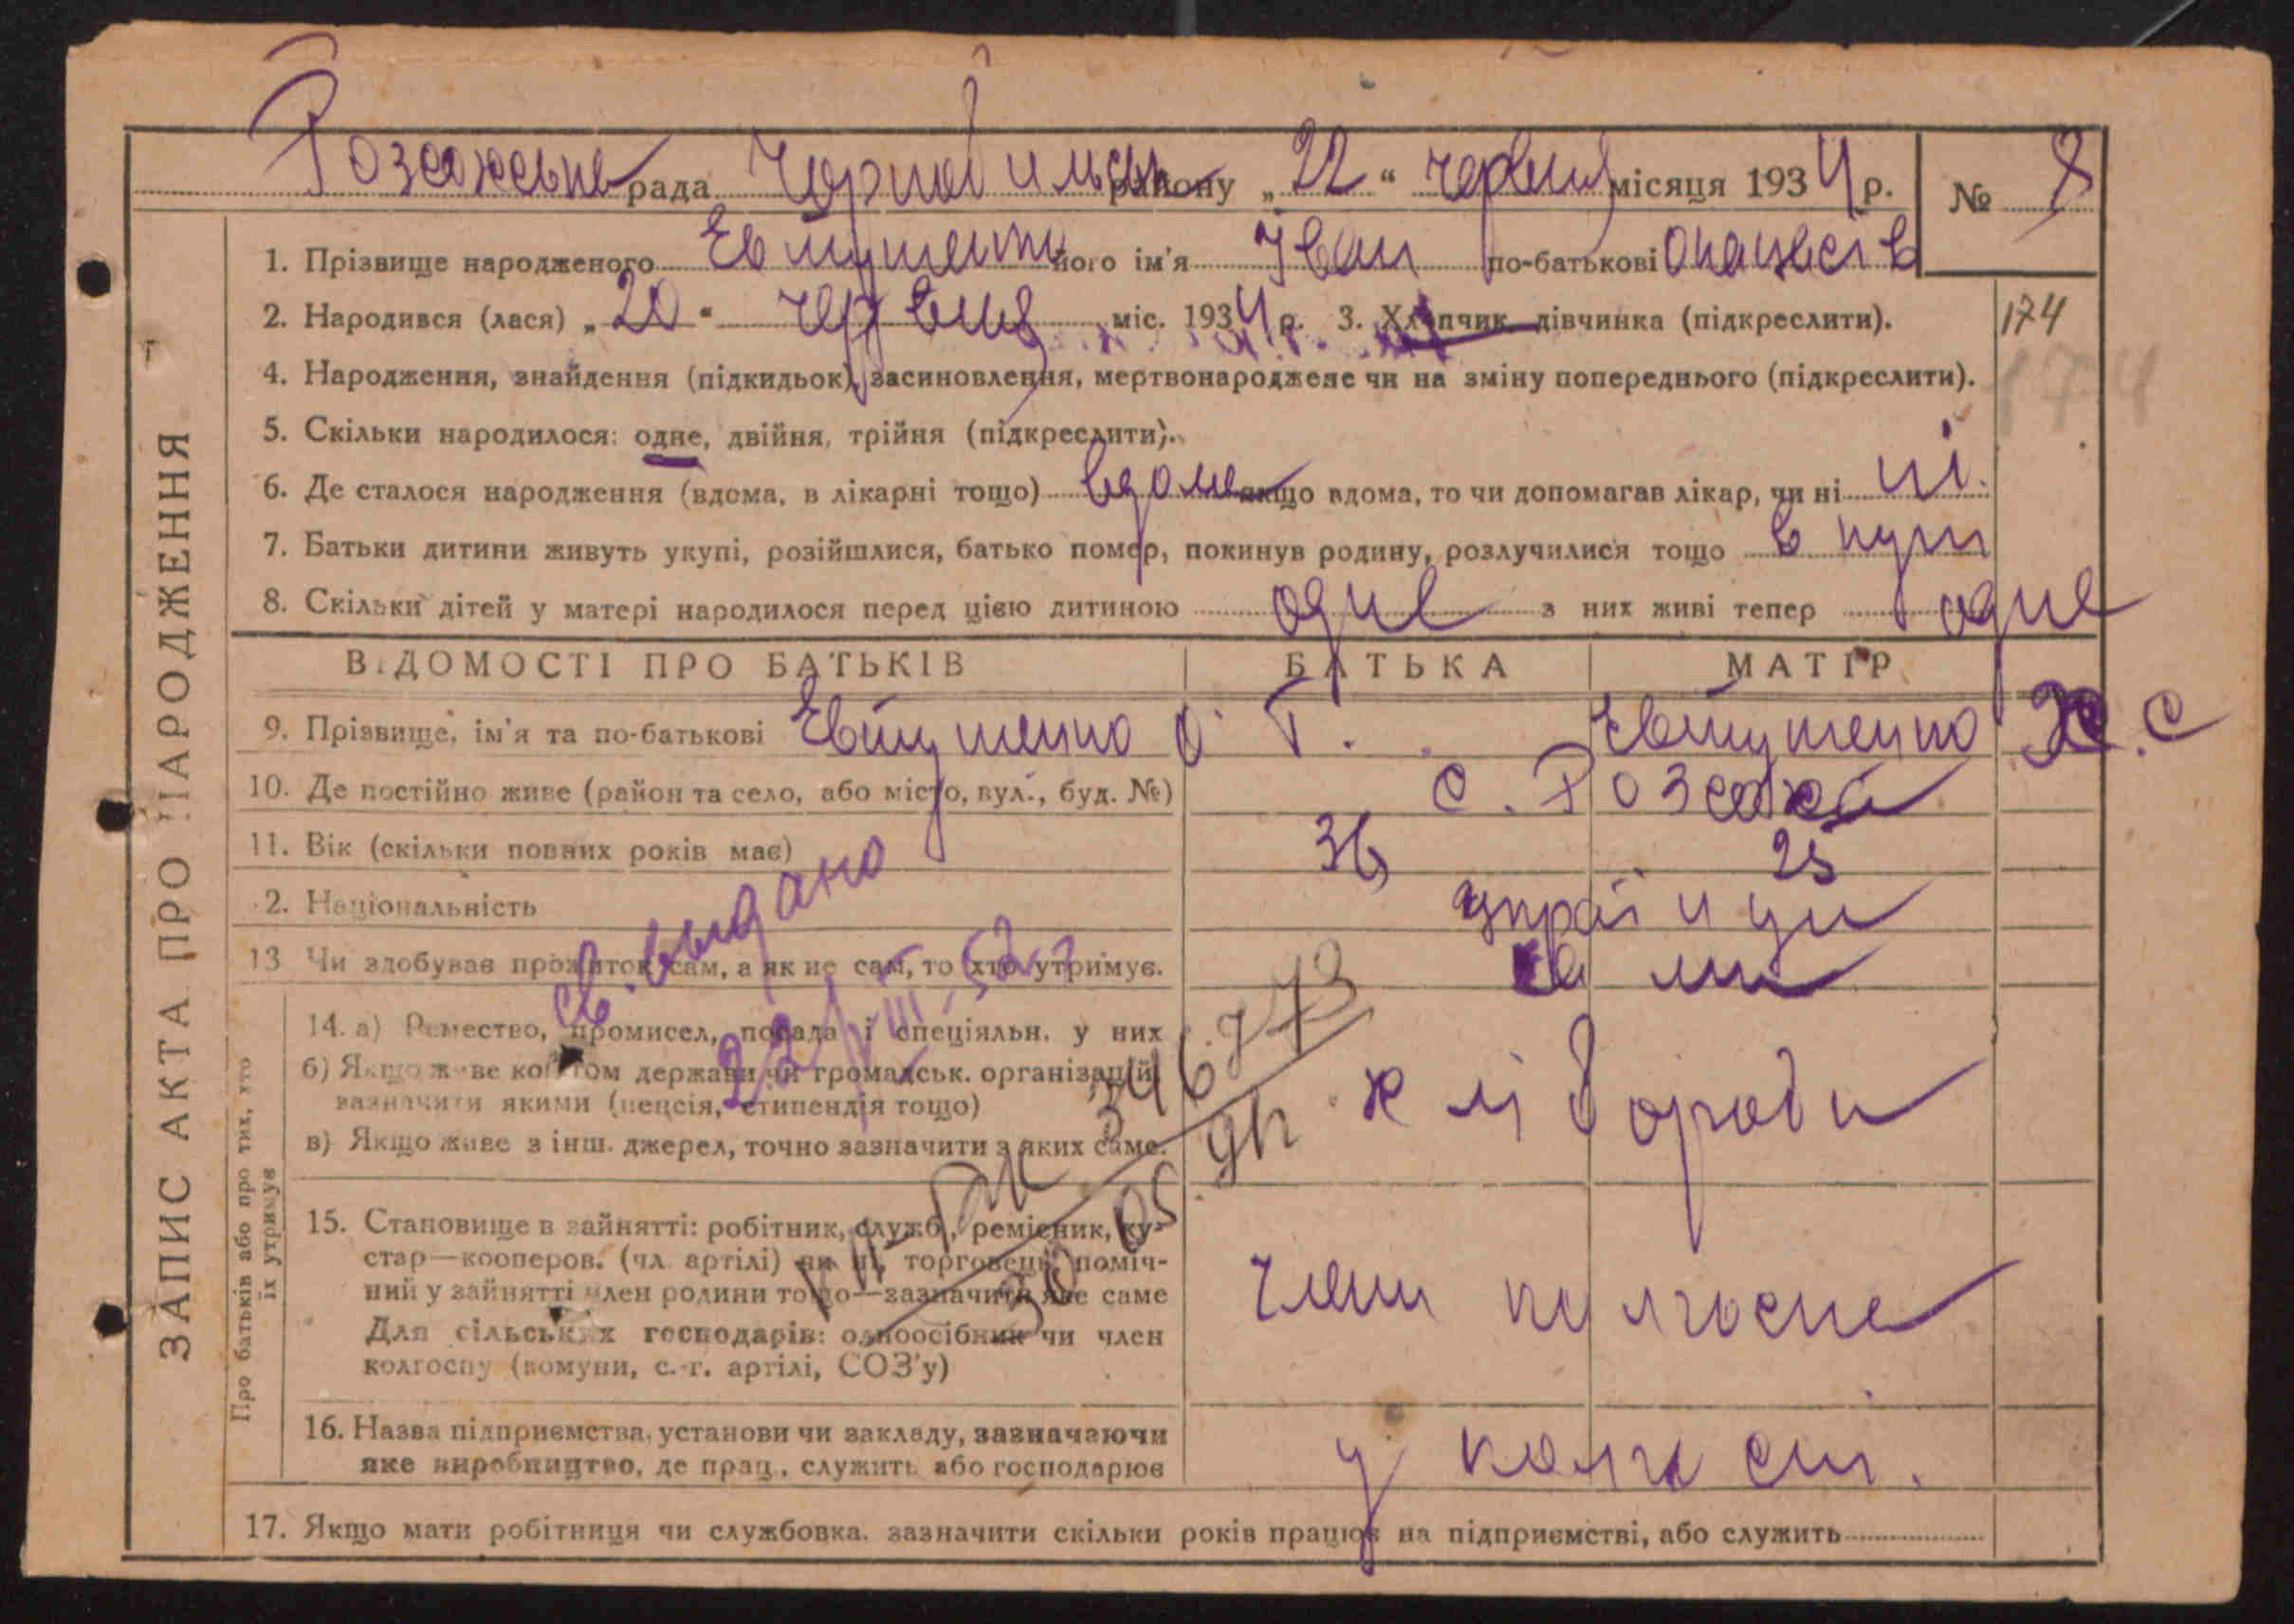 Розсожська рада Чорнобильськ району „22“ червня місяця 1934 р. № 8
1. Прізвище народженого Евтушенко його ім'я Іван по-батькові Опанасів
2. Народився (лася) „20“ червня міс. 1934 р. 3. Хлопчик, дівчинка (підкреслити). 174
4. Народження, знайдення (підкидьок), засиновлення, мертвонароджене чи на зміну попереднього (підкреслити). 174
5. Скільки народилося: одне, двійня, трійня (підкреслити).
6. Де сталося народження (вдома, в лікарні тощо) вдома якщо вдома, то чи допомагав лікар, чи ні ні.
7. Батьки дитини живуть укупі, розійшлися, батько помер, покинув родину, розлучилися тощо в купі
8. Скільки дітей у матері народилося перед цією дитиною одне з них живі тепер одне
ВІДОМОСТІ ПРО БАТЬКІВ БАТЬКА МАТІР
9. Прізвище, ім'я та по-батькові Евтушенко О. Т. Евтушенко Х. С
10. Де постійно живе (район та село, або місто, вул., буд. №) с. Розсожа
11. Вік (скільки повних років має) 36 25
12. Національність україници
13. Чи здобуває прожиток сам, а як не сам, то хто утримує. сами
св. выдано
22/VIII-52 г
14. а) Ремество, промисел, посада і спеціяльн. у них
б) Якщо живе коштом держави чи громадськ. організацій
зазначити якими (пенсія, стипендія тощо)
в) Якщо живе з інш. джерел, точно зазначити з яких саме.
хліборобы
15. Становище в зайнятті: робітник, служб., ремісник, ку-
стар—кооперов. (чл. артілі) чи ні, торговець, поміч-
ний у зайнятті член родини тощо—зазначити яке саме
Для сільських господарів: одноосібник чи член
колгоспу (комуни, с.-г. артілі, СОЗ'у)
член колгоспа
16. Назва підприємства, установи чи закладу, зазначаючи
яке виробництво, де прац., служить або господарює
у колгоспі.
17. Якщо мати робітниця чи службовка, зазначити скільки років працює на підприємстві, або служить
ЗАПИС АКТА ПРО НАРОДЖЕННЯ
Про батьків або про тих, хто
їх утримує